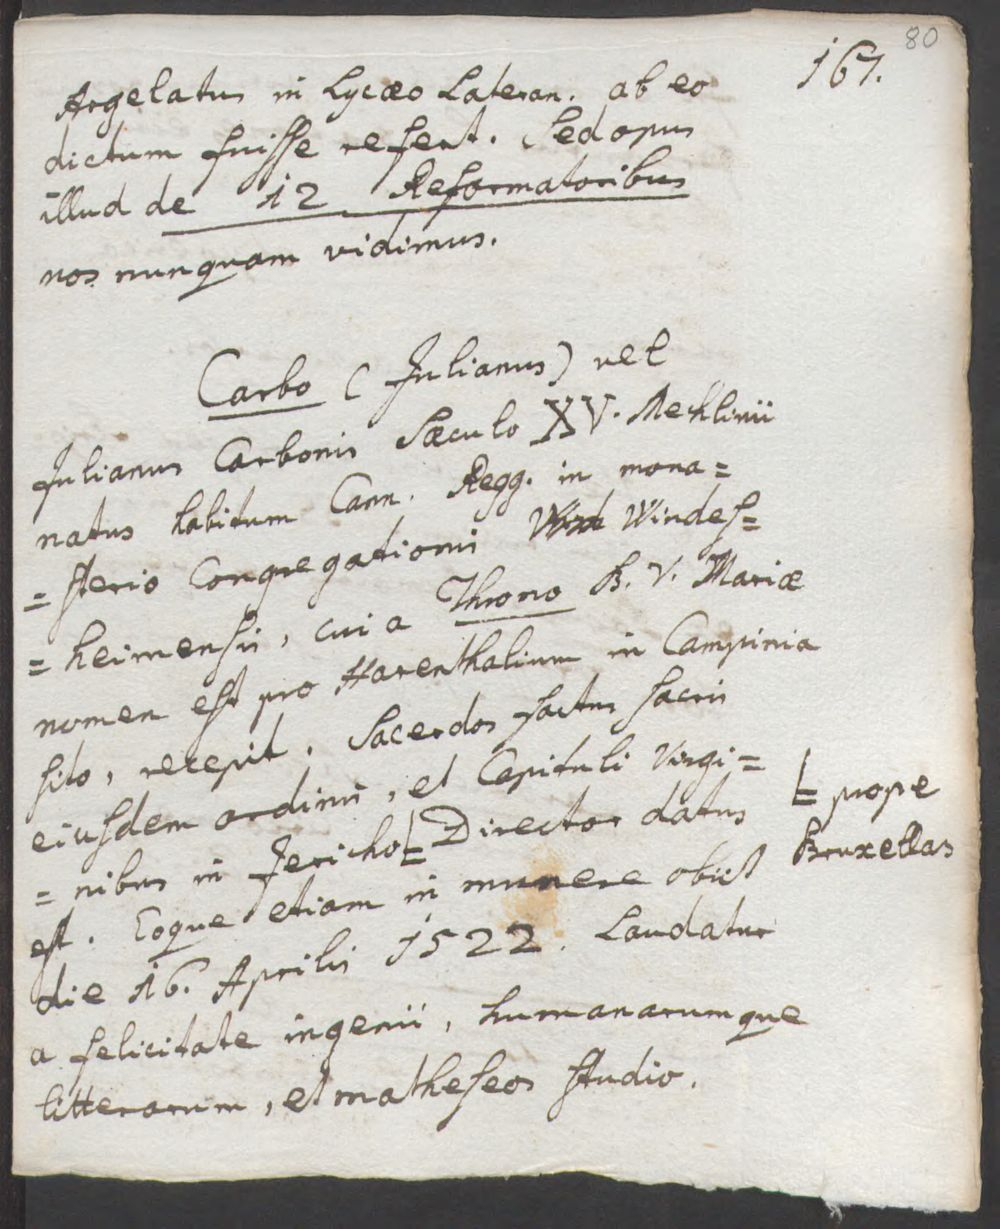 80
167.
Argelatus in Lycæo Lateran. ab eo
dictum fuisse refert. Sed opus
illud de 12 Reformatoribus
nos nunquam vidimus.
Carbo (Julianus) vel
Julianus Carbonis Sæculo XV. Mechlinii
natus habitum Cann. Regg. in mona=
=sterio Congregationis Windes=
=heimensis, cui a Throno B. V. Mariæ
nomen est pro Harenthalium in Campinia
sito, recepit. Sacerdos factus sacris
eiusdem ordinis, et Capituli Virgi=
=nibus in Jericho Director datus
prope
Bruxellas
est. Eoque etiam in munere obiit
die 16. Aprilis 1522. Laudatur
a felicitate ingenii, humanarumque
litterarum, et matheseos studio.